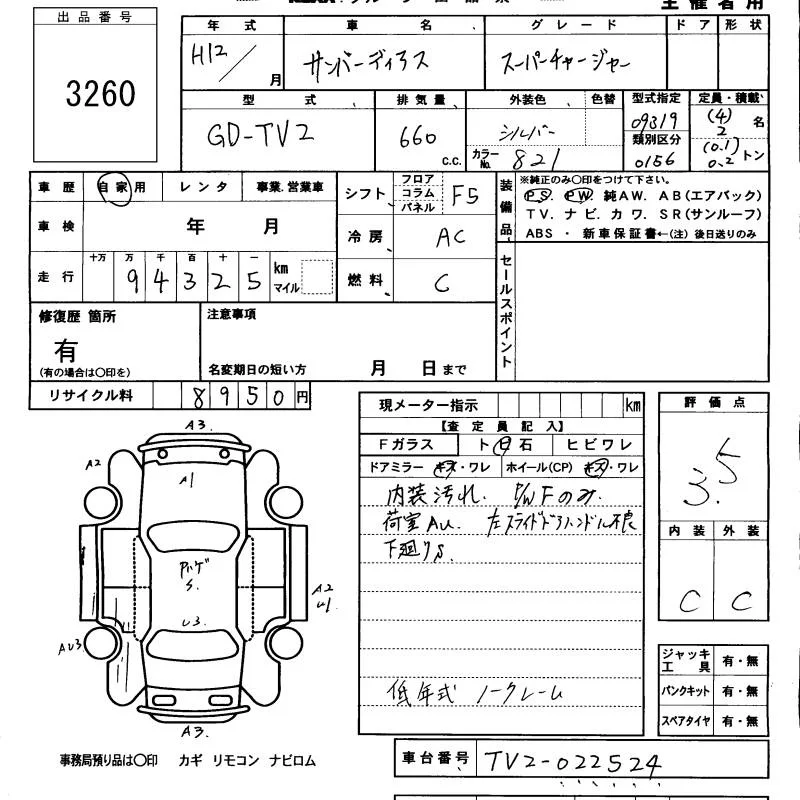 出品番号
3260
主催者用
年式 車名 グレード ドア 形状
H12/月 サンバーディアス スーパーチャージャー
型式 排気量 外装色 色替 型式指定 定員・積載
GD-TV2 660 c.c. シルバー 09319 (4) 2 名
カラーNo. 821 類別区分 0156 (0.1) 0.2 トン
車歴 自家用 レンタ 事業.営業車
車検 年 月
走行 十万 万 千 百 十 一
94325 km マイル
シフト フロア コラム パネル F5
冷房 AC
燃料 C
装備品 ※純正のみ〇印をつけて下さい。
PS. PW. 純AW. AB(エアバック)
TV. ナビ. カワ. SR(サンルーフ)
ABS ・ 新車保証書←(注) 後日送りのみ
セールスポイント
修復歴 箇所
有
(有の場合は〇印を)
注意事項
名変期日の短い方 月 日まで
リサイクル料 8950円
現メーター指示 km
【査定員記入】
Fガラス ト日石 ヒビワレ
ドアミラー キズ・ワレ ホイール(CP) キズ・ワレ
内装汚れ. P/W Fのみ.
荷室AU. 左スライドドアハンドル不良
下廻りS.
低年式 ノークレーム
評価点
3.5
内装 外装
C C
ジャッキ工具 有・無
パンクキット 有・無
スペアタイヤ 有・無
A3.
A2
A1
Pハゲ
S.
U3
A2
U1.
AU3
A3.
事務局預り品は〇印 カギ リモコン ナビロム
車台番号 TV2-022524